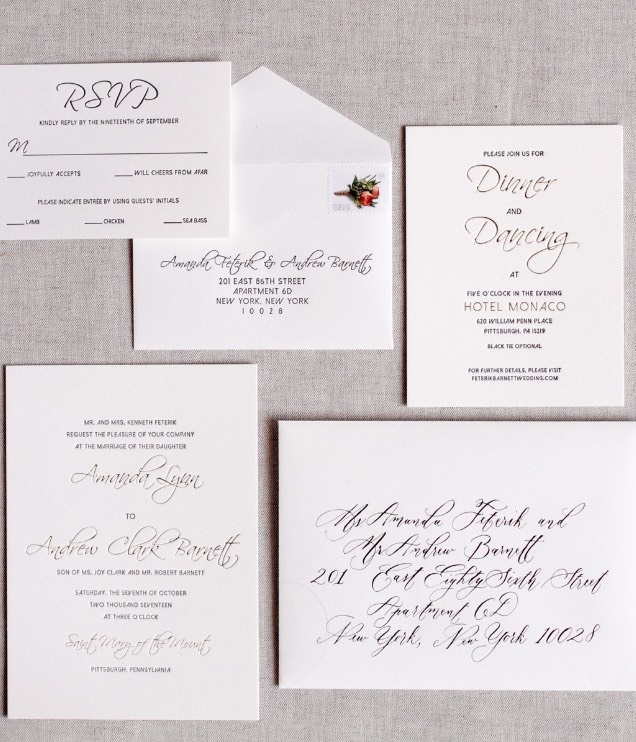 RSVP
KINDLY REPLY BY THE NINETEENTH OF SEPTEMBER
M
JOYFULLY ACCEPTS
WILL CHEERS FROM AFAR
PLEASE INDICATE ENTRÉE BY USING GUESTS' INITIALS
LAMB
CHICKEN
SEA BASS
FOREVER
USA
Amanda Feterik & Andrew Barnett
201 EAST 86TH STREET
APARTMENT 6D
NEW YORK, NEW YORK
10028
PLEASE JOIN US FOR
Dinner
AND
Dancing
AT
FIVE O'CLOCK IN THE EVENING
HOTEL MONACO
620 WILLIAM PENN PLACE
PITTSBURGH, PA 15219
BLACK TIE OPTIONAL
FOR FURTHER DETAILS, PLEASE VISIT
FETERIKBARNETTWEDDING.COM
MR. AND MRS. KENNETH FETERIK
REQUEST THE PLEASURE OF YOUR COMPANY
AT THE MARRIAGE OF THEIR DAUGHTER
Amanda Lynn
TO
Andrew Clark Barnett
SON OF MS. JOY CLARK AND MR. ROBERT BARNETT
SATURDAY, THE SEVENTH OF OCTOBER
TWO THOUSAND SEVENTEEN
AT THREE O'CLOCK
Saint Mary of the Mount
PITTSBURGH, PENNSYLVANIA
Ms Amanda Feterik and
Mr Andrew Barnett
201 East Eighty Sixth Street
Apartment 6D
New York, New York 10028